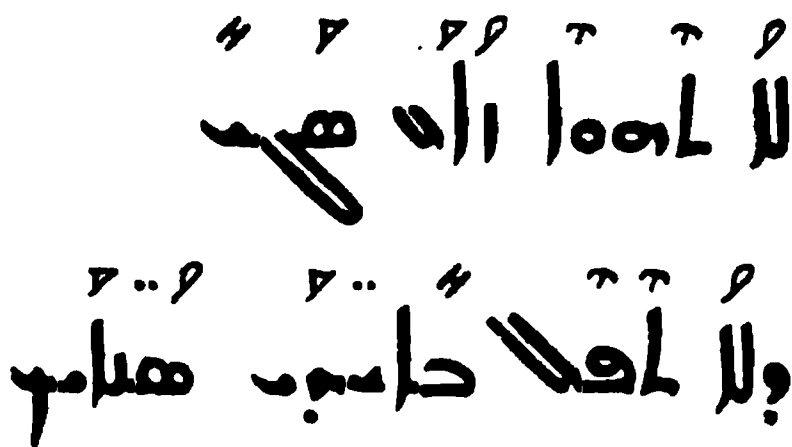 ܠܳܐ ܬܶܗܘܶܐ ܙܳܐܰܥ ܣܰܓܺܝ
ܕܠܳܐ ܬܶܦܶܠ ܒܺܐܝܕܰܝ̈ ܣܳܢܐܰܝ̈ܟ